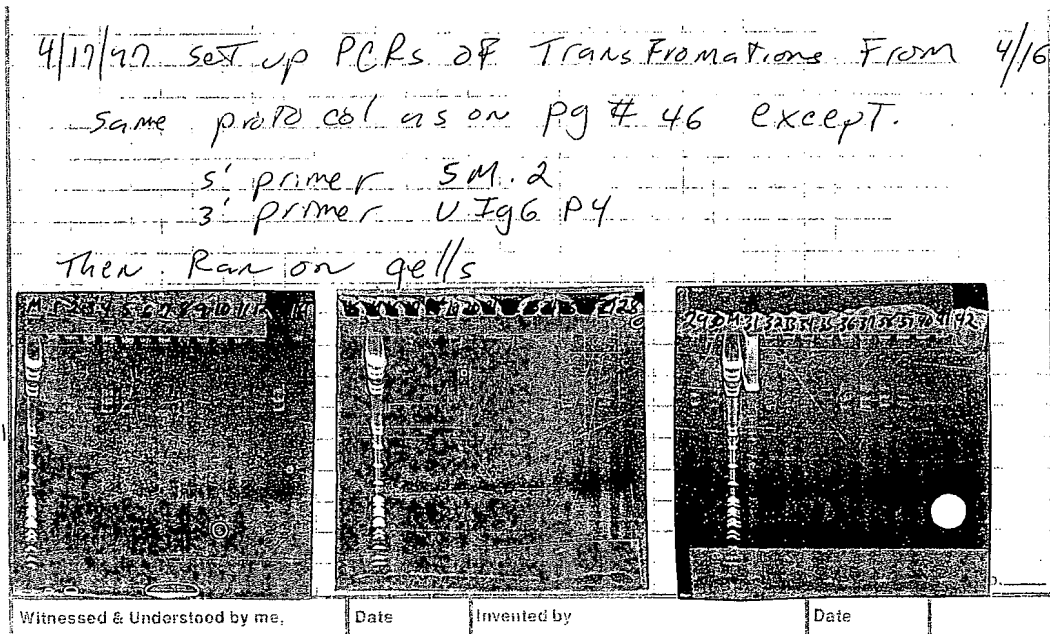 4/17/97 set up PCRs of Trans Fromations From 4/16
Same protocol as on pg # 46 except.
5' primer 5M.2
3' primer U IgG P4
Then Ran on gells
M 1 2 3 4 5 6 7 8 9 10 11 12
27 28
29 30 M 31 32 33 34 35 36 37 38 39 40 41 42
Witnessed & Understood by me, Date Invented by Date